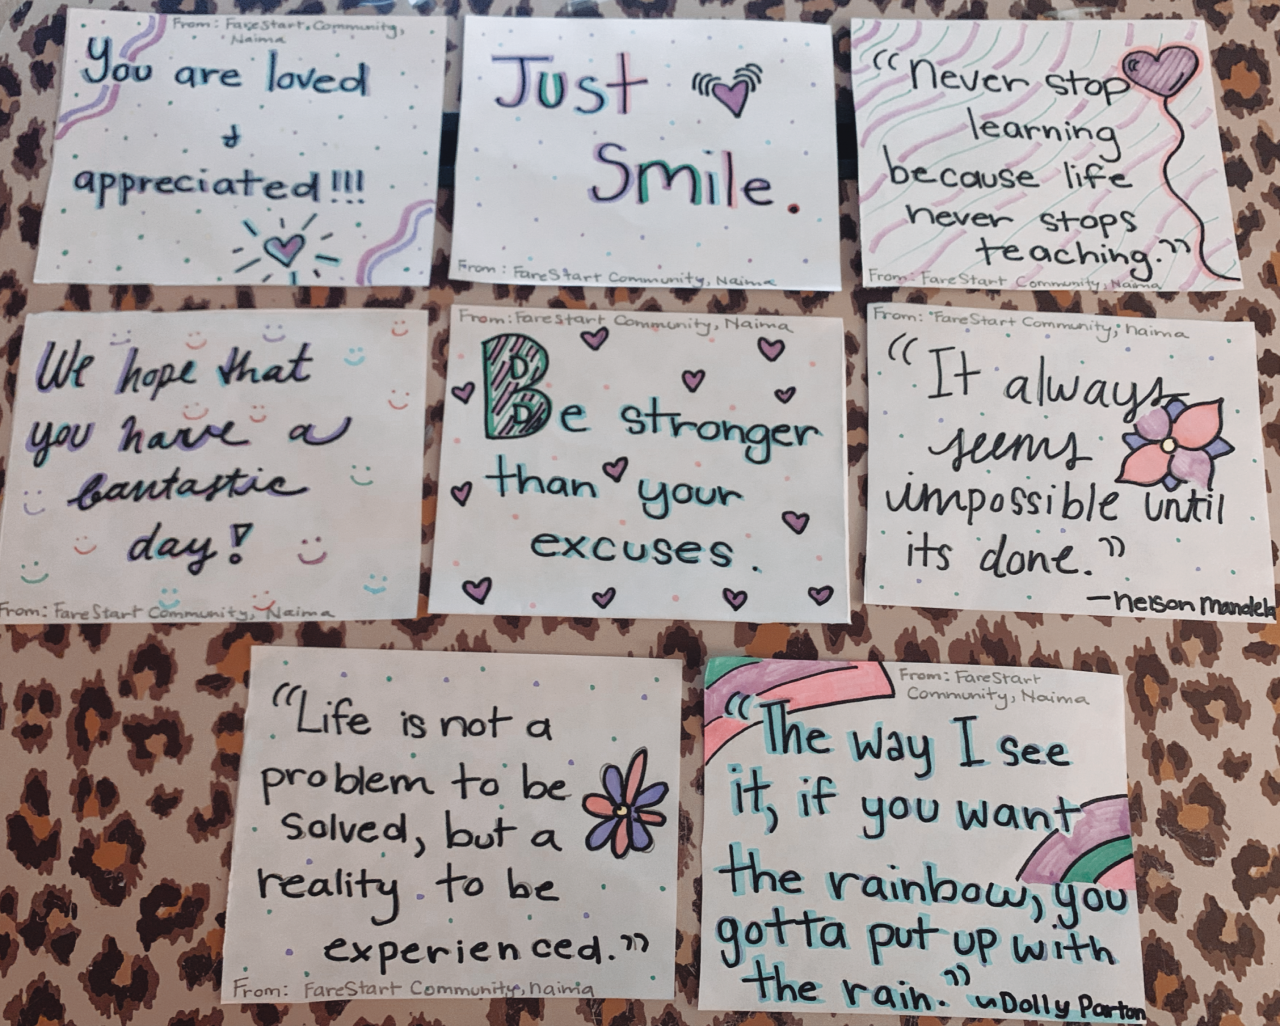 From: FareStart Community,
Naima
You are loved
&
appreciated!!!
Just
Smile.
From: FareStart Community, Naima
"Never stop
learning
because life
never stops
teaching."
From: FareStart Community, Naima
We hope that
you have a
fantastic
day!
From: FareStart Community, Naima
From: FareStart Community, Naima
Be stronger
than your
excuses.
From: FareStart Community, Naima
"It always
seems
impossible until
its done."
—Nelson Mandela
"Life is not a
problem to be
solved, but a
reality to be
experienced."
From: FareStart Community, Naima
From: FareStart
Community, Naima
"The way I see
it, if you want
the rainbow, you
gotta put up with
the rain."
~Dolly Parton